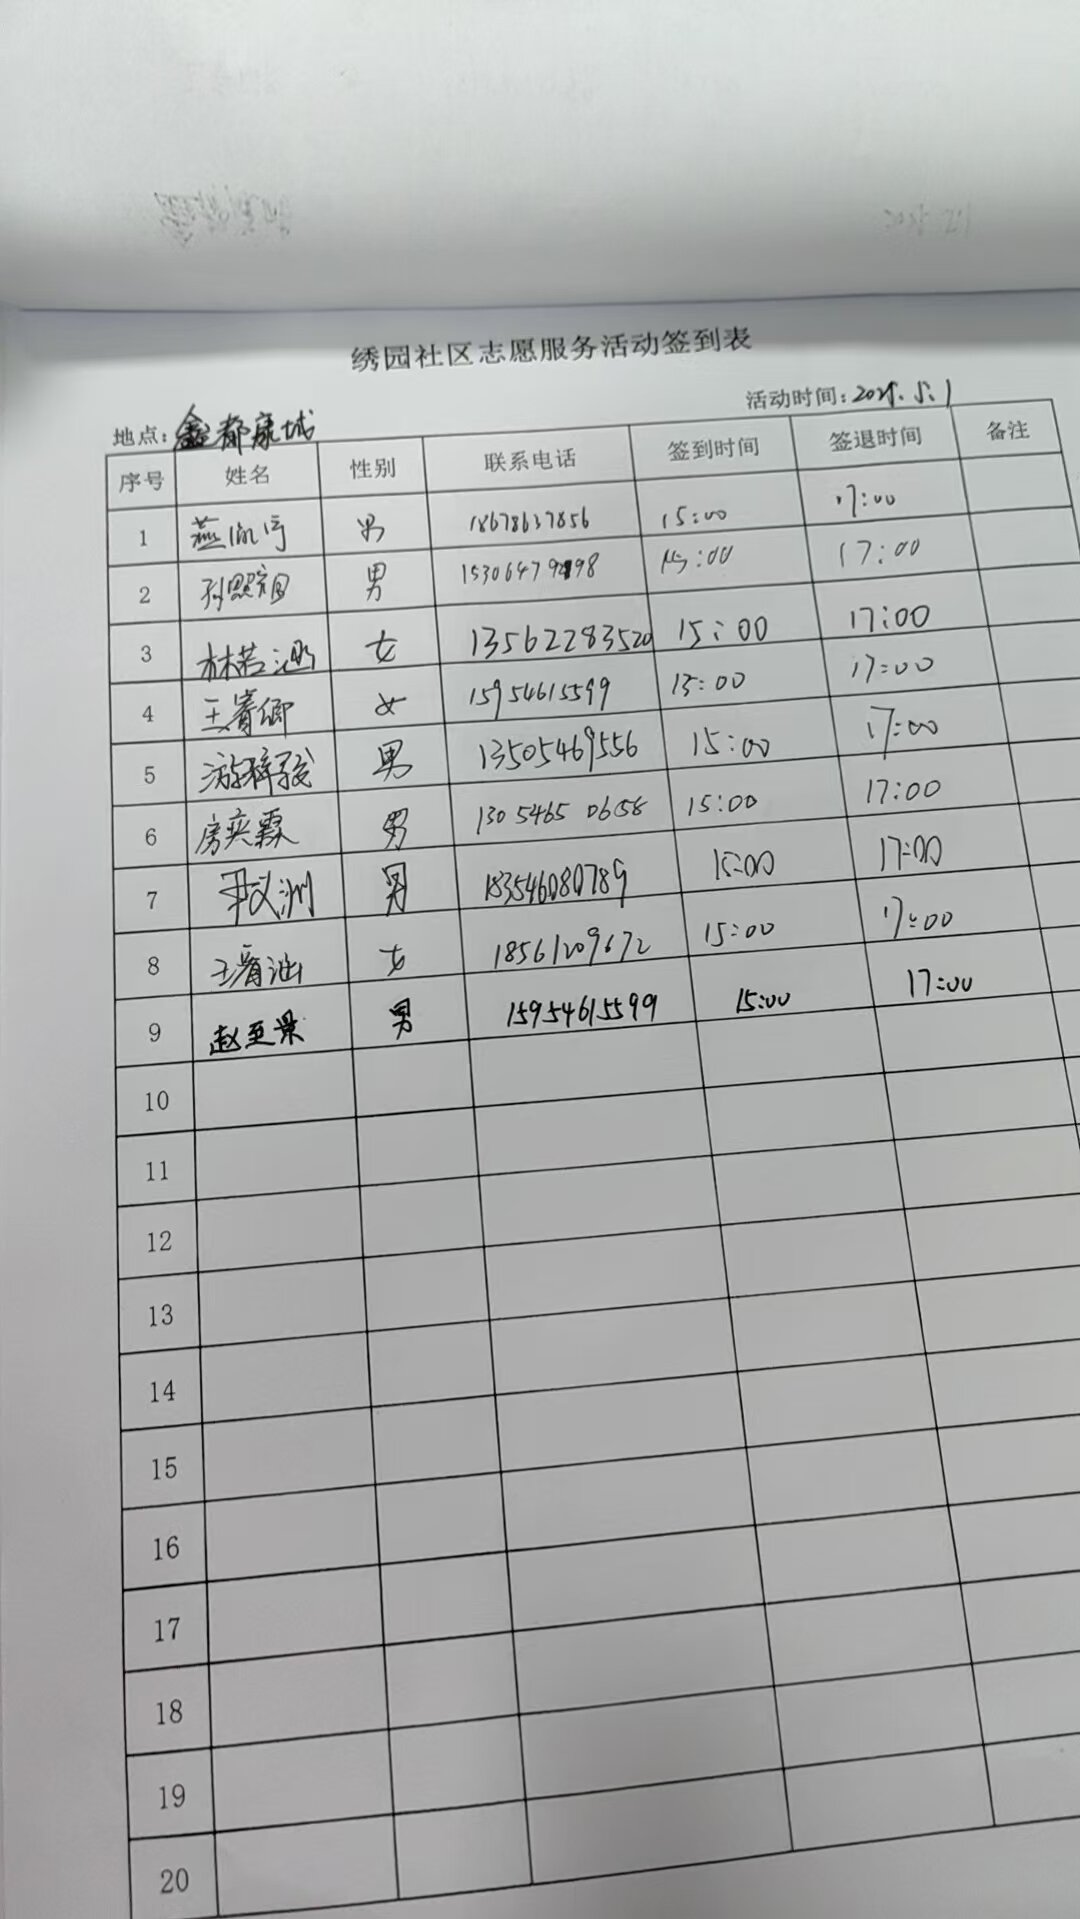 绣园社区志愿服务活动签到表
地点：鑫都康城 活动时间：2025.5.1
序号 姓名 性别 联系电话 签到时间 签退时间 备注
1 燕 男 18678637856 15:00 17:00
2 孙照 男 15:00 17:00
3 林若涵 女 13562283520 15:00 17:00
4 王睿卿 女 15954615599 15:00 17:00
5 游梓 男 13505469556 15:00 17:00
6 房奕霖 男 130 5465 0658 15:00 17:00
7 尹义洲 男 183546080789 15:00 17:00
8 王 女 18561209672 15:00 17:00
9 赵至景 男 15954615599 15:00 17:00
10
11
12
13
14
15
16
17
18
19
20